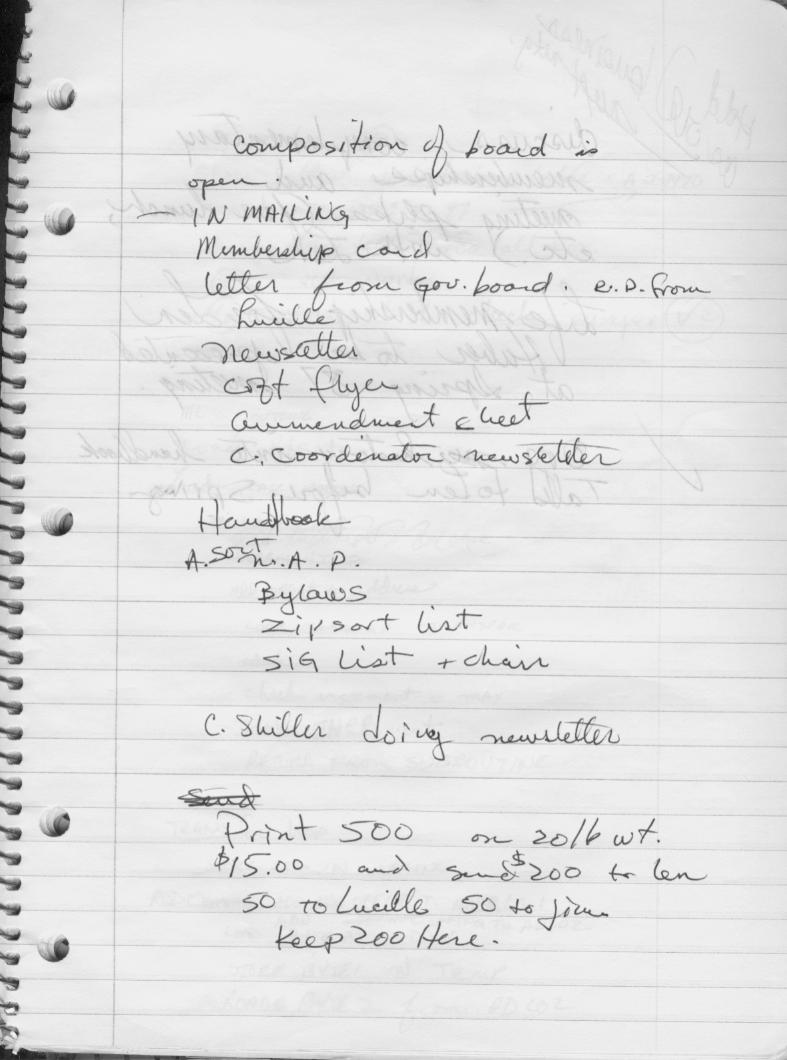 composition of board is
open.
— IN MAILING
Membership card
letter from Gov. board. e.D. from
Lucille
newsletter
flyer
ammendment sheet
C. Coordinator newsletter
Handbook
A. sort m. A. P.
Bylaws
Zip sort list
SiG List + chair
C. Skiller doing newsletter
send
Print 500 on 20lb wt.
$15.00 and send $200 to len
50 to Lucille 50 to Jim
Keep 200 Here.